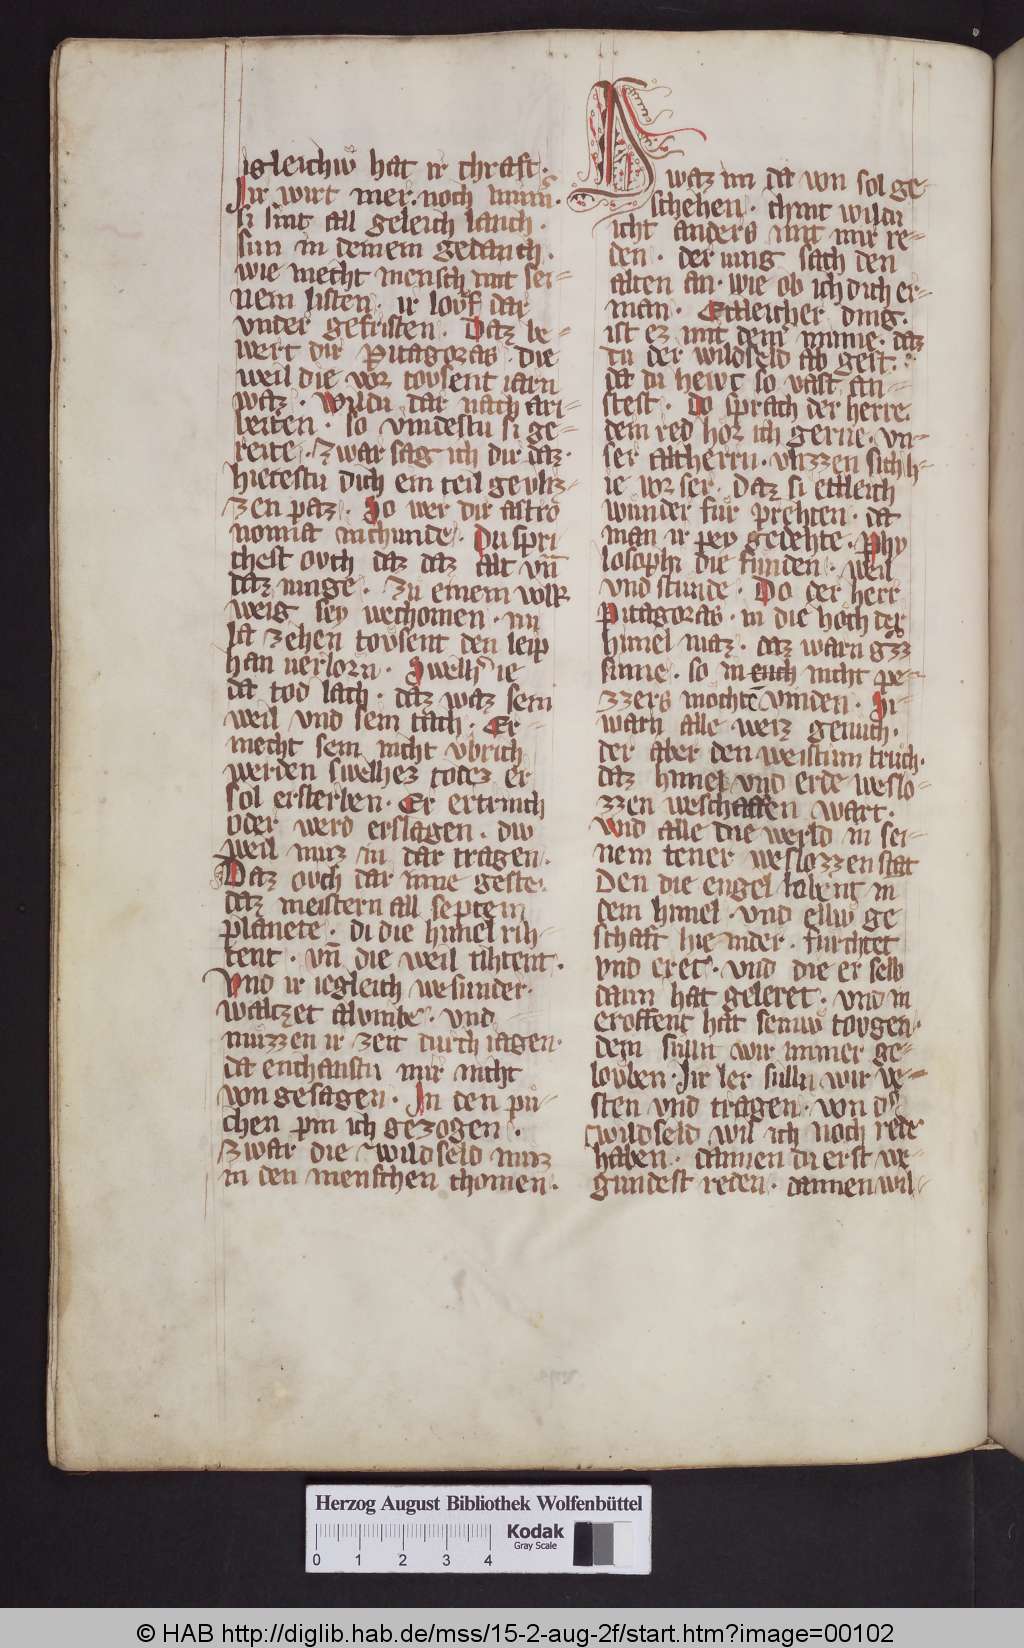 igleichiv hat ir chraft ·
Jr wirt mer · noch minn̄ ·
si sint all geleich lanch ·
sun in deinem gedanch ·
wie mecht mensch mit sei-
nem listen · ir lovf dar
vnder gefristen · Daz be-
wert dir Pitagoras die
weil die vor tovsent iarn
waz · Wildu dar nach ari-
beiten · so vindestu si ge-
reite · zwar sag ich dir daz ·
hietestu dich ein teil gevliz-
zen paz · So wer dir astro
nomia chunde · Du spri
chest ovch daz daz alt vn̄
daz iunge · zu einem volk
weig sey wechomen · nu
la zehen tovsent den leip
han uerlorn · Swelhˢ ie
da tod lach · daz waz sein
weil vnd sein tach · Er-
mecht sein nicht vbrich
werden swelhez todez er
sol ersterben · Er ertrinch
oder werd erslagen · div
weil muz in dar tragen ·
Daz ovch dar inne geste ·
daz meistern all septem
planete · di die himel rih-
tent · vn̄ die weil tihtent ·
Vnd ir iegleich wesunder ·
waltzet alvmbe · vnd
muzzen ir zeit durch iagen ·
da enchanstu mir nicht
von gesagen · Jn den pu-
chen pin ich gezogen ·
zwar die wildseld muz
in den menschen chomen ·
Waz im da von sol ge-
schehen · chint wildu
icht anders mit mir re-
den · der iung sach den
alten an · wie ob ich dich er-
man · Ettleicher ding ·
ist ez mit dem minne · daz
du der wildseld ab gest ·
da du hewt so vast an-
stest · Do sprach der herre
dein red hor ich gerne · vn-
ser altherrn · vlizzen sich h-
ie vor ser · Daz si ettleich
wunder fur prehten · da
man ir pey gedehte · Phy
losophi die funden · weil
vnd stunde · Do der herr
Pitagoras · in die hoch der
himel maz · daz warn gͦzz
sinne · so in euch nicht pe-
zzers mochtē vinden · Si
warn alle weiz genuch ·
der aber den weistum truch ·
daz himel vnd erde weslo-
zzen weschaffen wart ·
Vnd alle die werld in sei-
nem tener weslozzen stat
Den die engel lobent in
dem himel · vnd elliv ge
schaft hie nider · furchtet
vnd eret · vnd die er selb
dann hat geleret · vnd in
eroffent hat seiniv tovgen ·
dem sulln wir immer ge-
louben · Jr ler sulln wir ve-
sten vnd tragen · von dˢ
wildseld wil ich noch rede
haben · dannen du erst we-
gundest reden · dannen wil-
Herzog August Bibliothek Wolfenbüttel
Kodak
Gray Scale
0 1 2 3 4
© HAB http://diglib.hab.de/mss/15-2-aug-2f/start.htm?image=00102